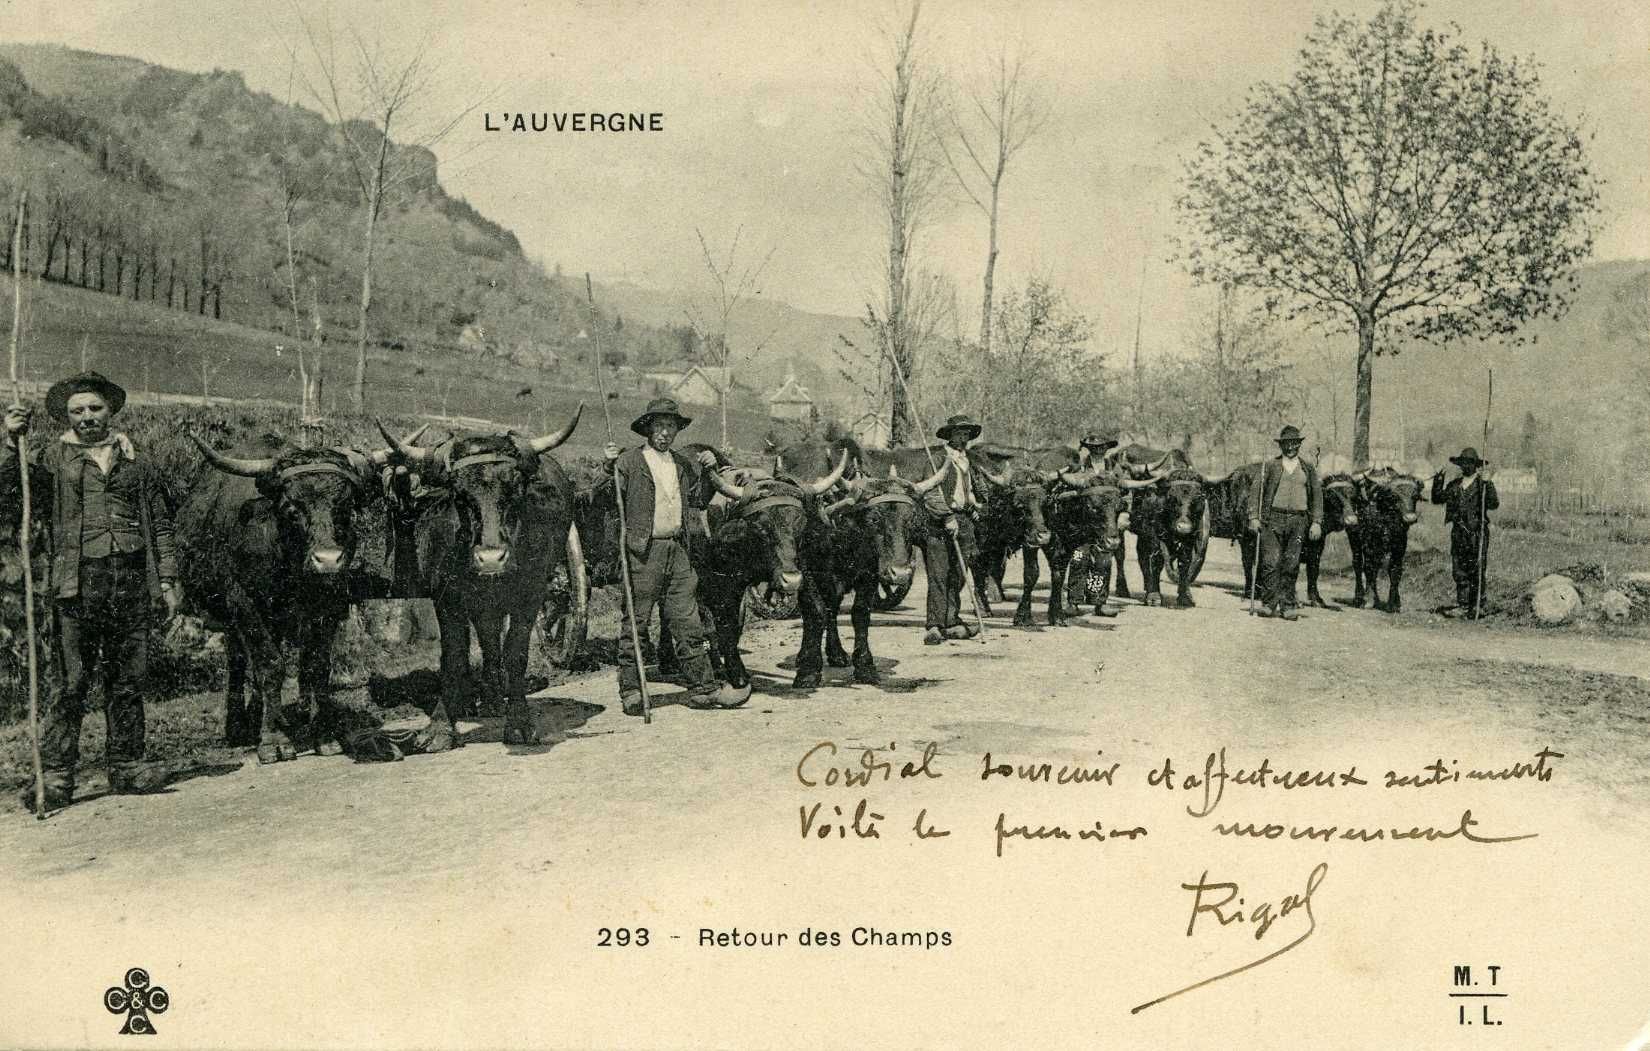 L'AUVERGNE
Cordial souvenir et affectueux sentiments
Voilà le premier mouvement
Rigal
293 - Retour des Champs
C
C & C
C
M. T
I. L.